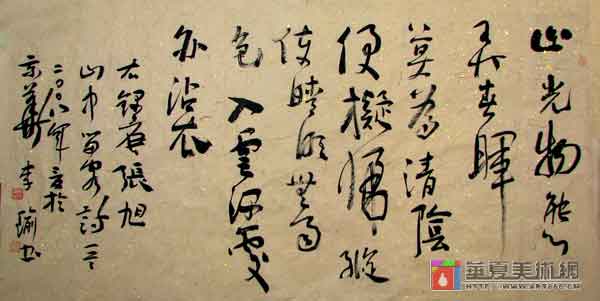 山光物態
弄春暉
莫為清陰
便擬歸縱
使晴明無雨
色入雲深處
亦沾衣
右錄唐張旭
山中留客詩一首
二〇〇八年 於
京華 李瑜书
華夏美術網